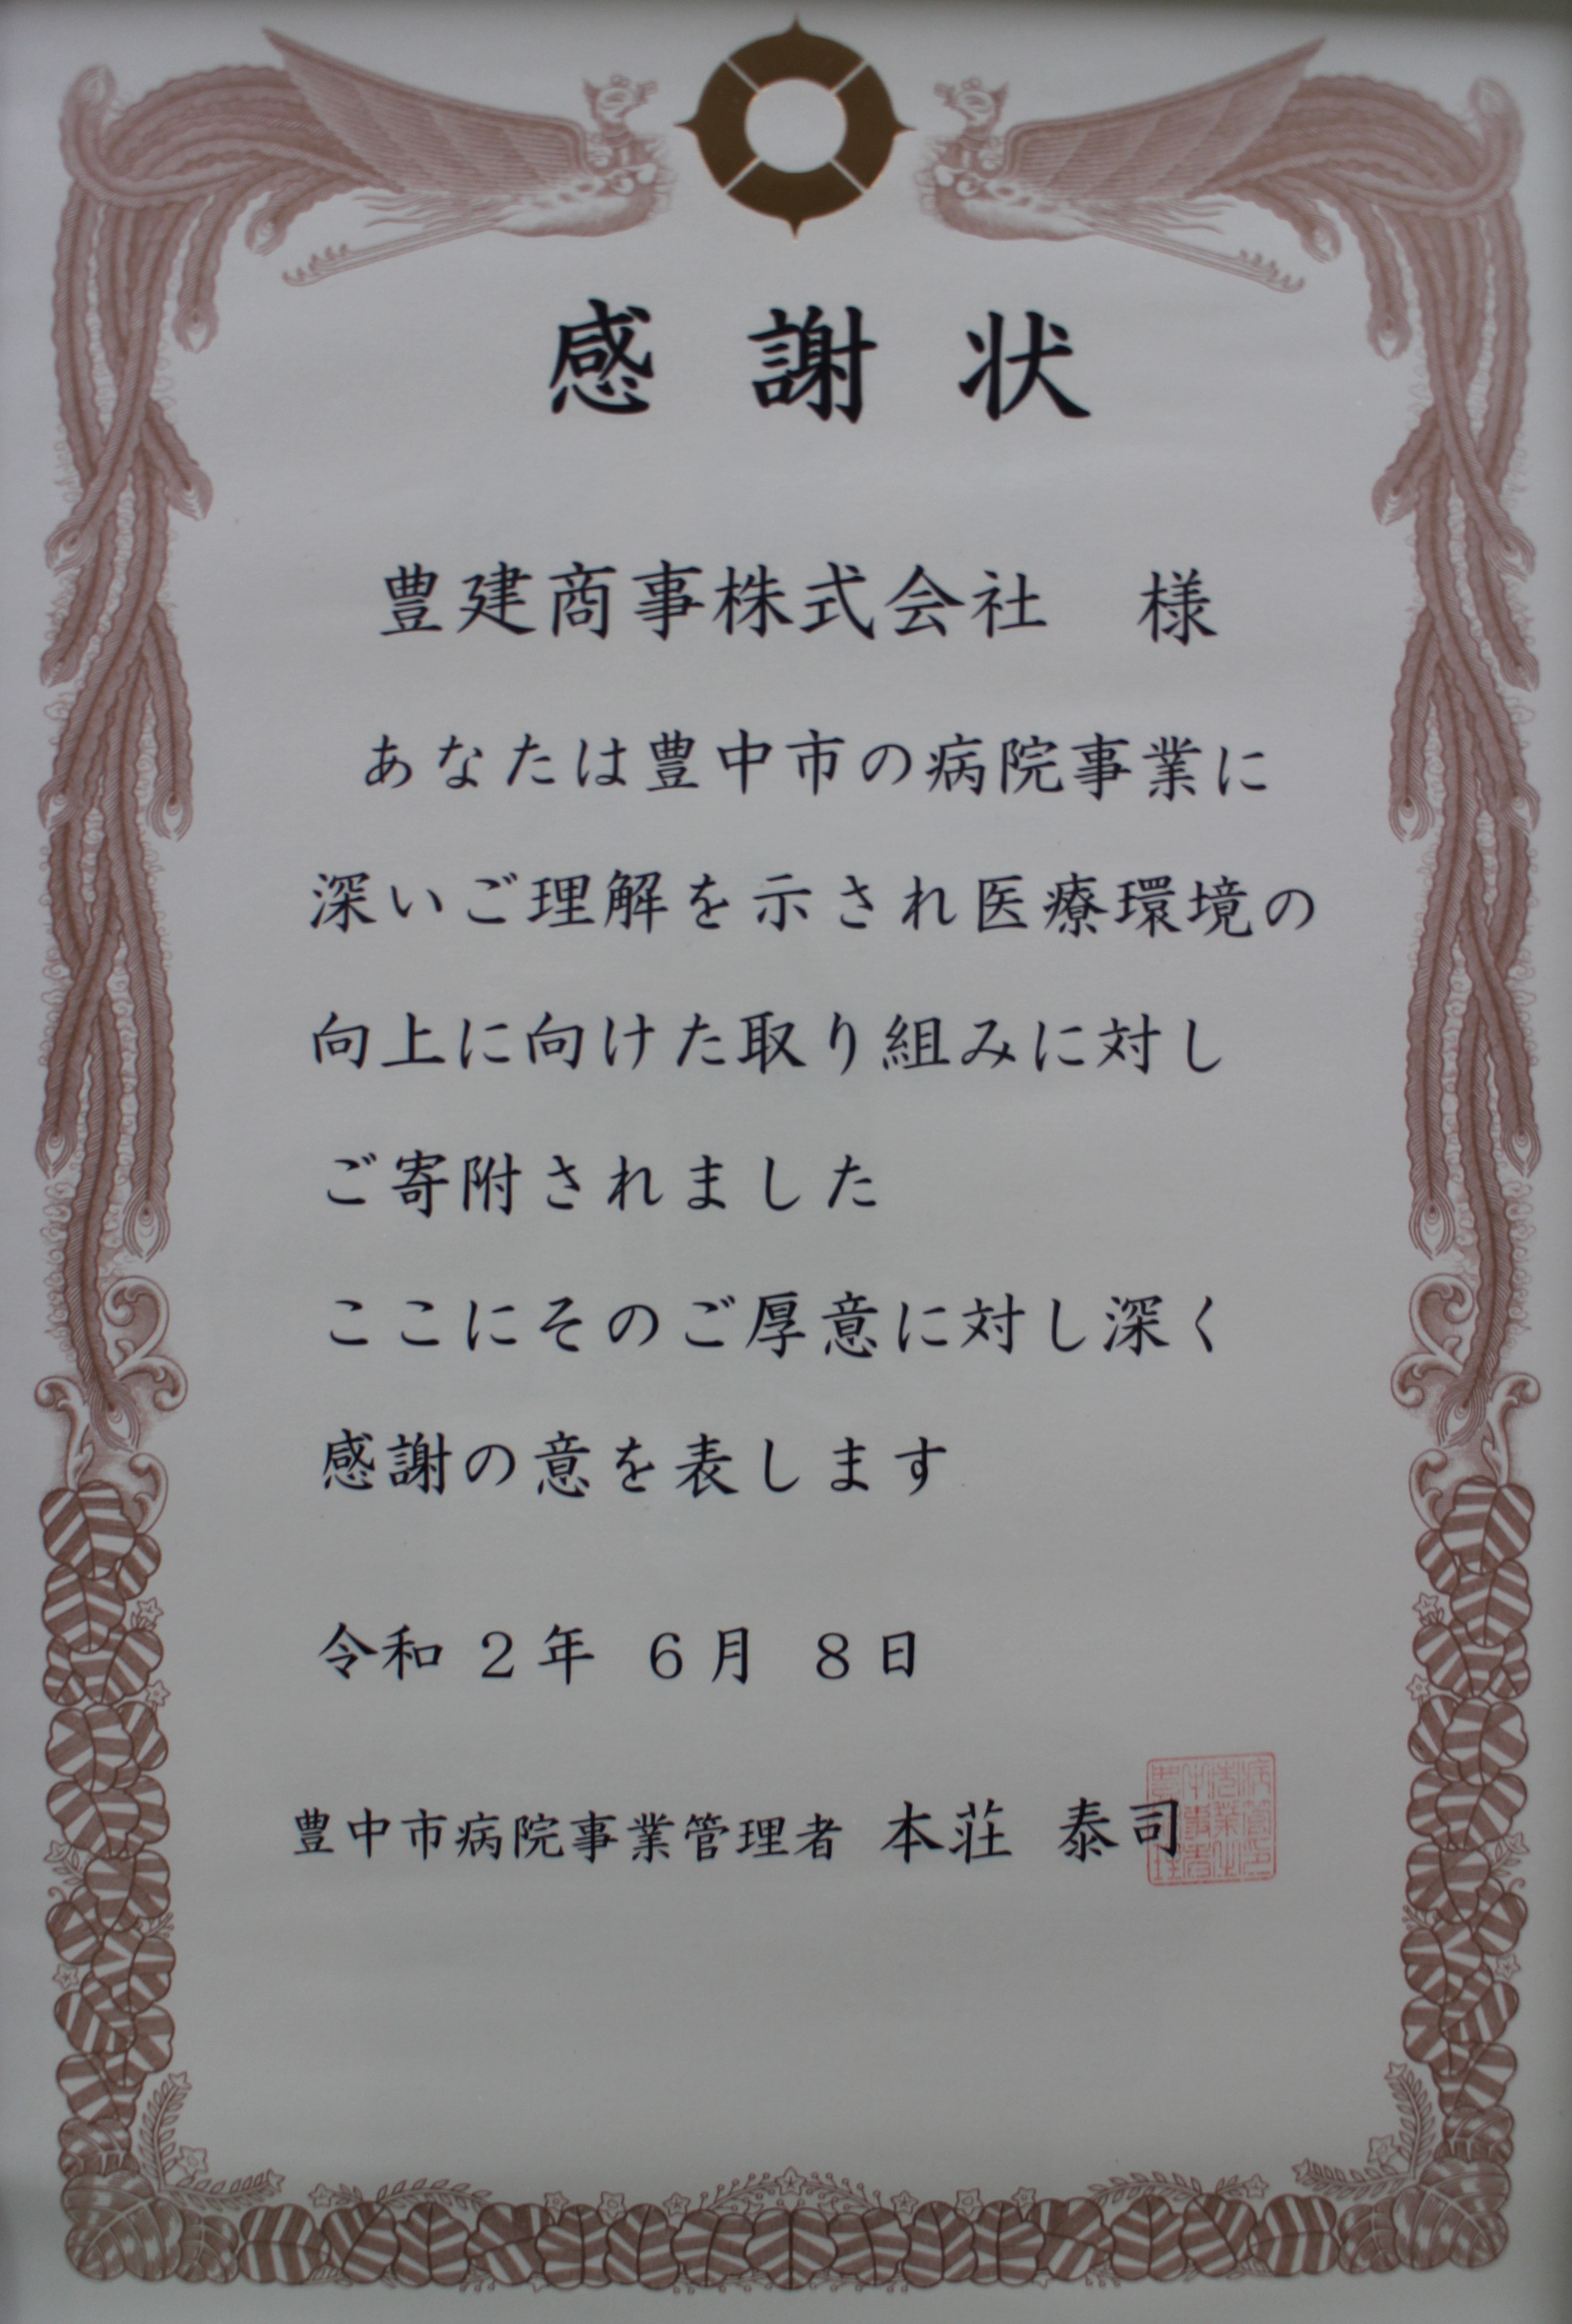 感謝状
豊建商事株式会社　様
あなたは豊中市の病院事業に
深いご理解を示され医療環境の
向上に向けた取り組みに対し
ご寄附されました
ここにそのご厚意に対し深く
感謝の意を表します
令和 2年 6月 8日
豊中市病院事業管理者 本荘 泰司